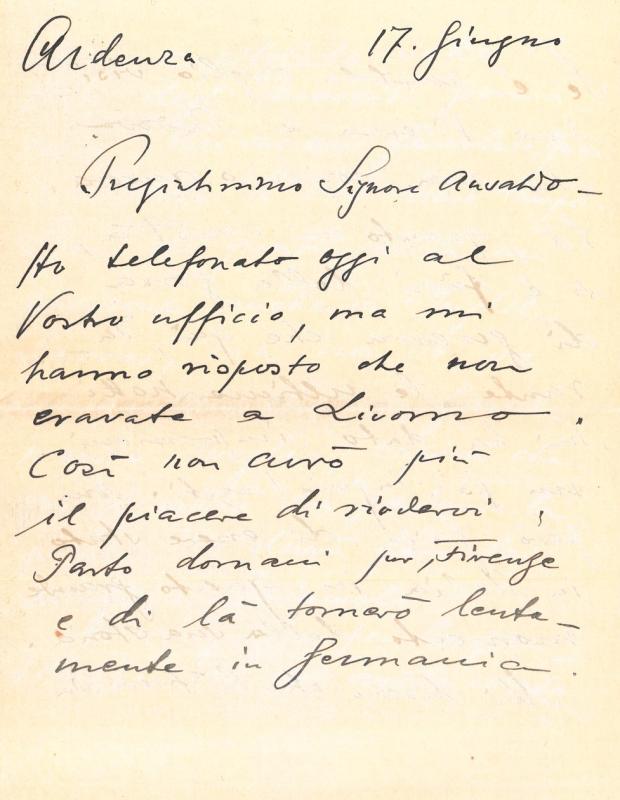 Ardenza 17. Giugno
Pregiatissimo Signore Ansaldo —
Ho telefonato oggi al
Vostro ufficio, ma mi
hanno risposto che non
eravate a Livorno.
Così non avrò più
il piacere di rivedervi.
Parto domani per Firenze
e di là tornerò lenta-
mente in Germania.